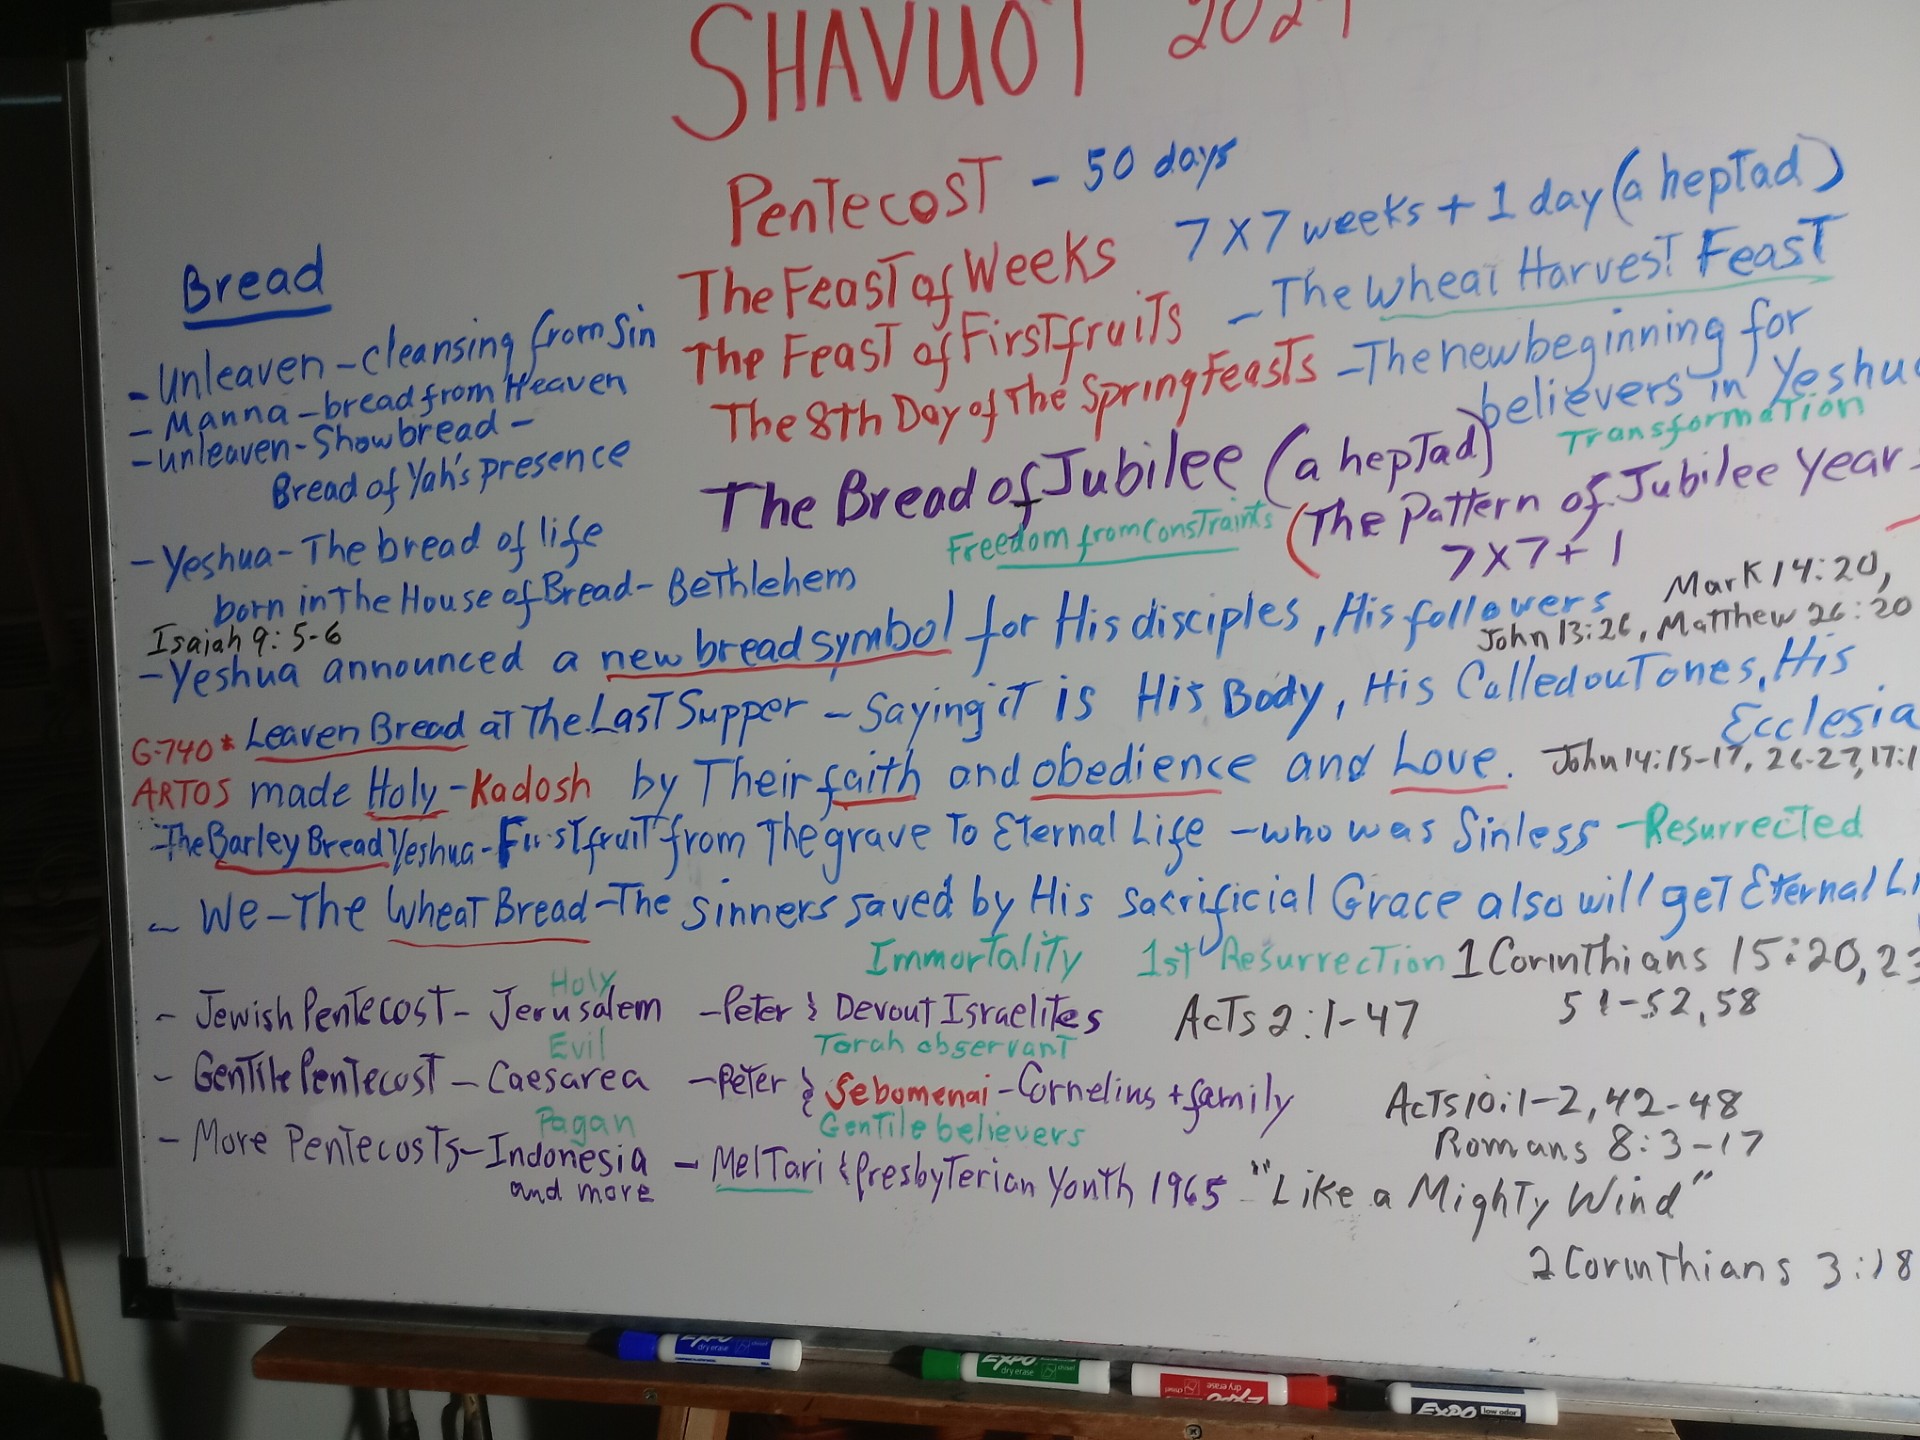 SHAVUOT
Pentecost - 50 days
The Feast of Weeks 7 x 7 weeks + 1 day (a heptad)
The Feast of Firstfruits - The Wheat Harvest Feast
The 8th Day of The Spring Feasts - The new beginning for
believers in
Transformation
The Bread of Jubilee (a heptad)
(The Pattern of Jubilee Year
Freedom from constraints
7 x 7 + 1
Bread
- Unleaven - cleansing from Sin
- Manna - bread from Heaven
- unleaven - Showbread -
Bread of Yah's presence
- Yeshua - The bread of life
born in The House of Bread - Bethlehem
Isaiah 9:5-6
Mark 14:20,
John 13:26, Matthew 26:20
- Yeshua announced a new bread symbol for His disciples, His followers
G-740* Leaven Bread at The Last Supper - Saying it is His Body, His Calledout ones, His
Ecclesia
ARTOS made Holy - Kadosh by Their faith and obedience and Love. John 14:15-17, 26-27, 17:1
- The Barley Bread Yeshua - Firstfruit from The grave To Eternal Life - who was Sinless - Resurrected
- We - The Wheat Bread - The Sinners saved by His Sacrificial Grace also will get Eternal
Immortality 1st Resurrection 1 Corinthians 15:20, 23
51-52, 58
Holy
- Jewish Pentecost - Jerusalem - Peter & Devout Israelites Acts 2:1-47
Evil Torah observant
- Gentile Pentecost - Caesarea - Peter & Sebomenai - Cornelius + family Acts 10:1-2, 42-48
Pagan Gentile believers
Romans 8:3-17
- More Pentecosts - Indonesia - Mel Tari & Presbyterian Youth 1965 "Like a Mighty Wind"
and more
2 Corinthians 3:18
EXPO
dry erase
EXPO
dry erase
EXPO
dry erase
EXPO
low odor